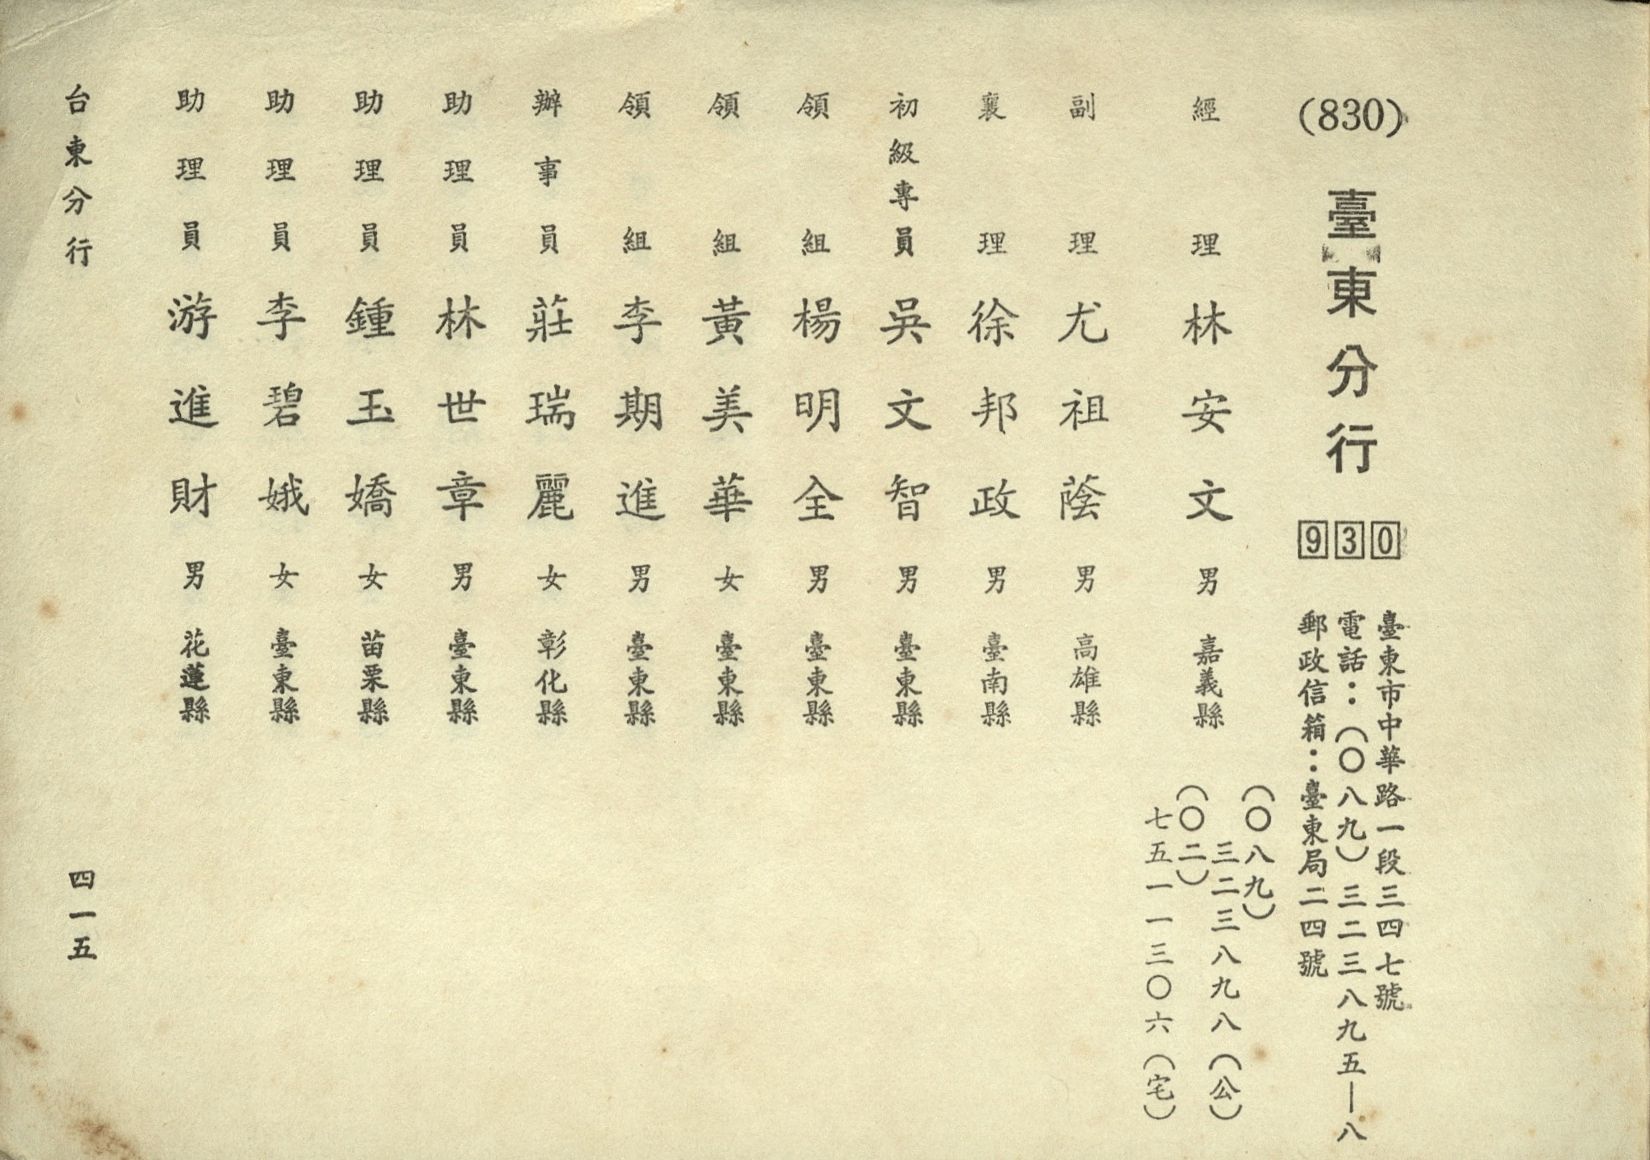 (830) 臺東分行 930
臺東市中華路一段三四七號
電話：(〇八九)三二三八九五—八
郵政信箱：臺東局二四號
經理 林安文 男 嘉義縣
(〇八九)
三二三八九八(公)
(〇二)
七五一一三〇六(宅)
副理 尤祖蔭 男 高雄縣
襄理 徐邦政 男 臺南縣
初級專員 吳文智 男 臺東縣
領組 楊明全 男 臺東縣
領組 黃美華 女 臺東縣
領組 李期進 男 臺東縣
辦事員 莊瑞麗 女 彰化縣
助理員 林世章 男 臺東縣
助理員 鍾玉嬌 女 苗栗縣
助理員 李碧娥 女 臺東縣
助理員 游進財 男 花蓮縣
台東分行 四一五